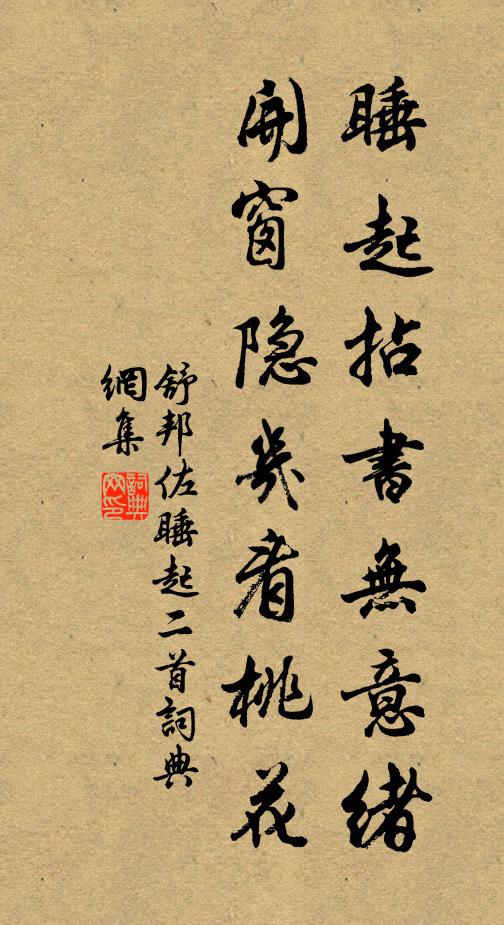 睡起拈書無意緒
開窗隐幾看桃花
舒邦佐睡起二首詞典
網集
詞典
网印